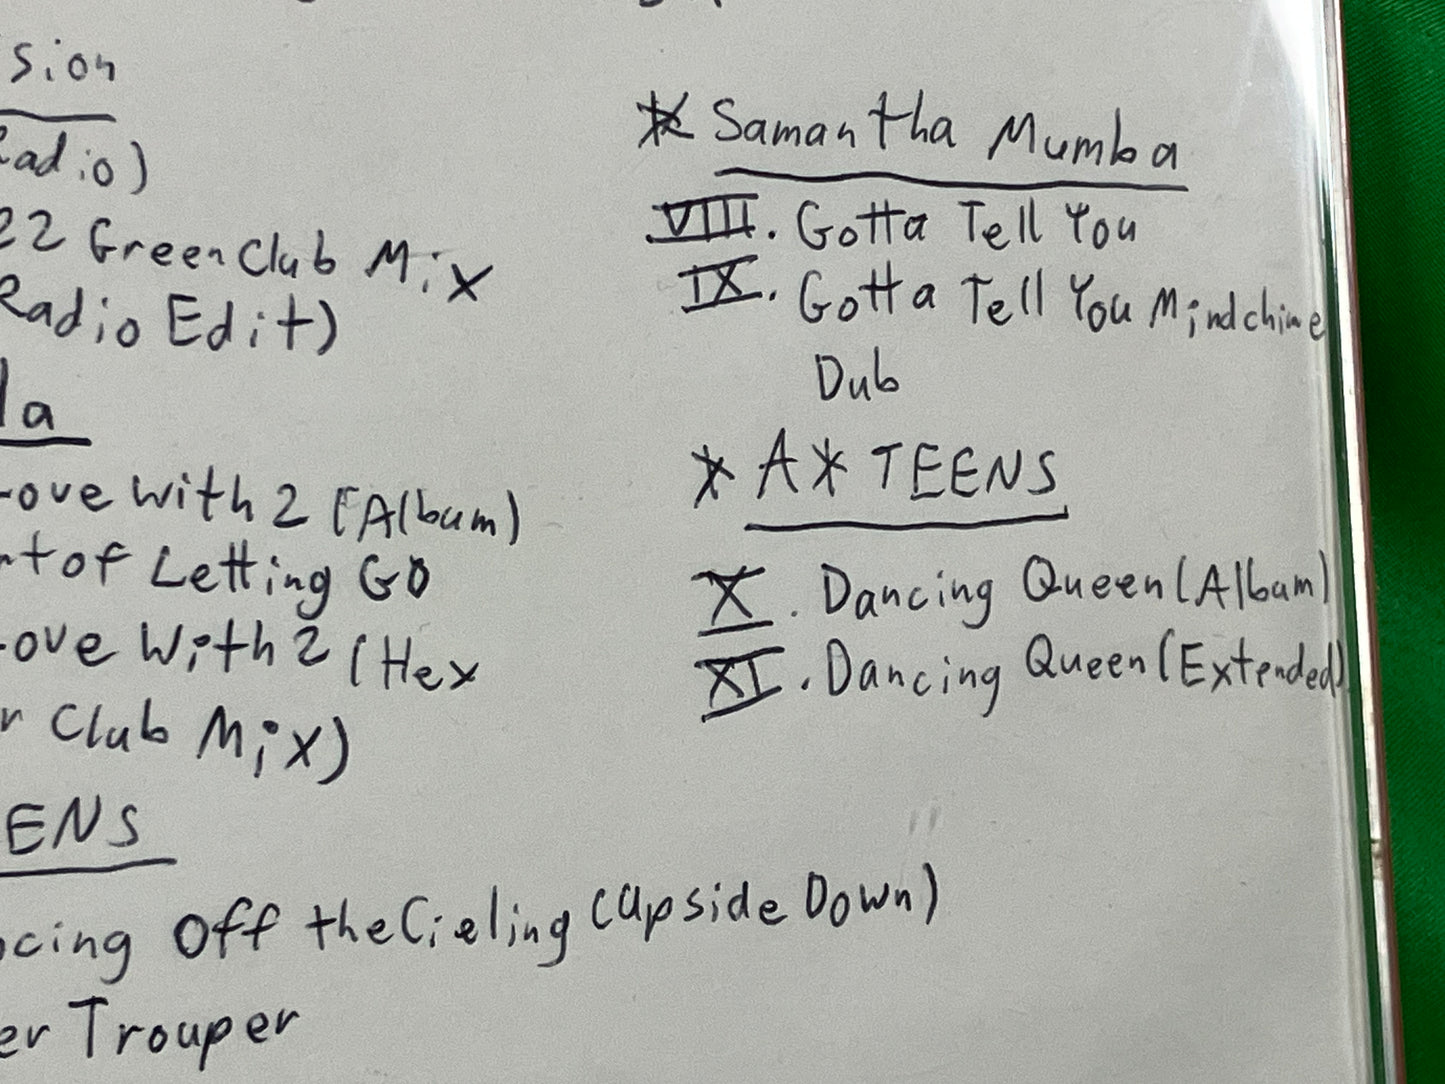 sion
Radio)
22 Green Club Mix
Radio Edit)
la
ove With 2 (Album)
rt of Letting GO
ove With 2 (Hex
r Club Mix)
ENS
ncing Off the Cieling (Upside Down)
er Trouper
* Samantha Mumba
VIII. Gotta Tell You
IX. Gotta Tell You Mindchime
Dub
* A* TEENS
X. Dancing Queen (Album)
XI. Dancing Queen (Extended)